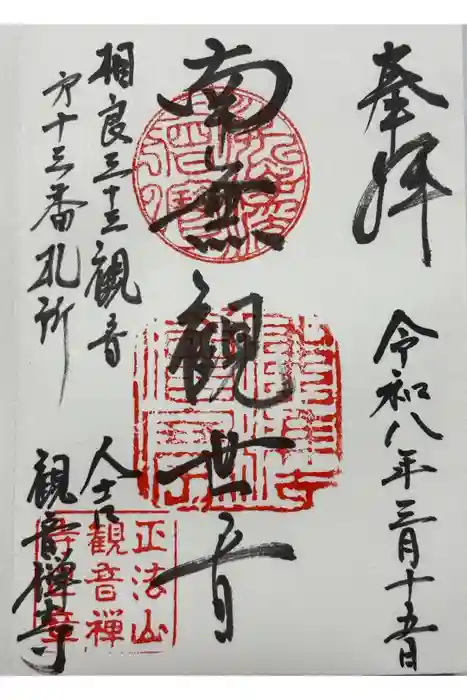 奉拝
令和八年三月十五日
南無観世音
相良三十三観音
第十三番札所
人吉
観音禅寺
正法山
観音禅
寺章